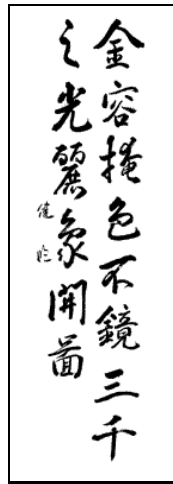 金容掩色不鏡三千
之光麗象開啚
健臨